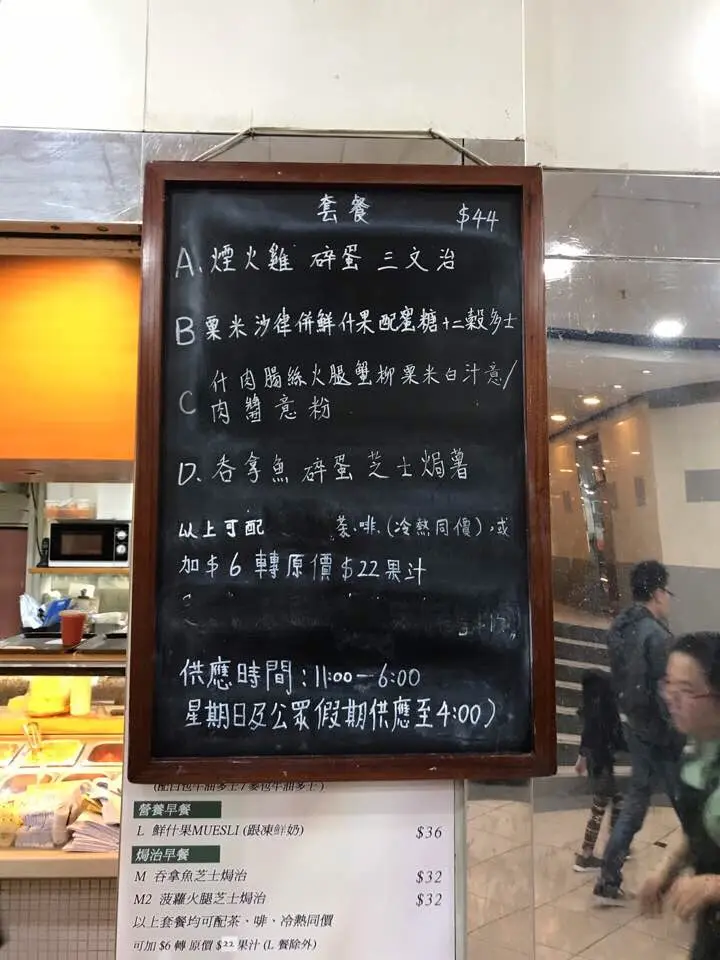 套餐 $44
A. 煙火雞 碎蛋 三文治
B 粟米沙律併鮮什果配蜜糖十二穀多士
C 什肉腸絲火腿蟹柳粟米白汁意/
肉醬意粉
D. 吞拿魚 碎蛋 芝士焗薯
以上可配 茶、啡、(冷熱同價)、或
加$6轉原價$22果汁
供應時間:11:00—6:00
星期日及公眾假期供應至4:00)
營養早餐
L 鮮什果MUESLI (跟凍鮮奶) $36
焗治早餐
M 吞拿魚芝士焗治 $32
M2 菠蘿火腿芝士焗治 $32
以上套餐均可配茶、啡、冷熱同價
可加 $6 轉 原價 $22 果汁 (L 餐除外)